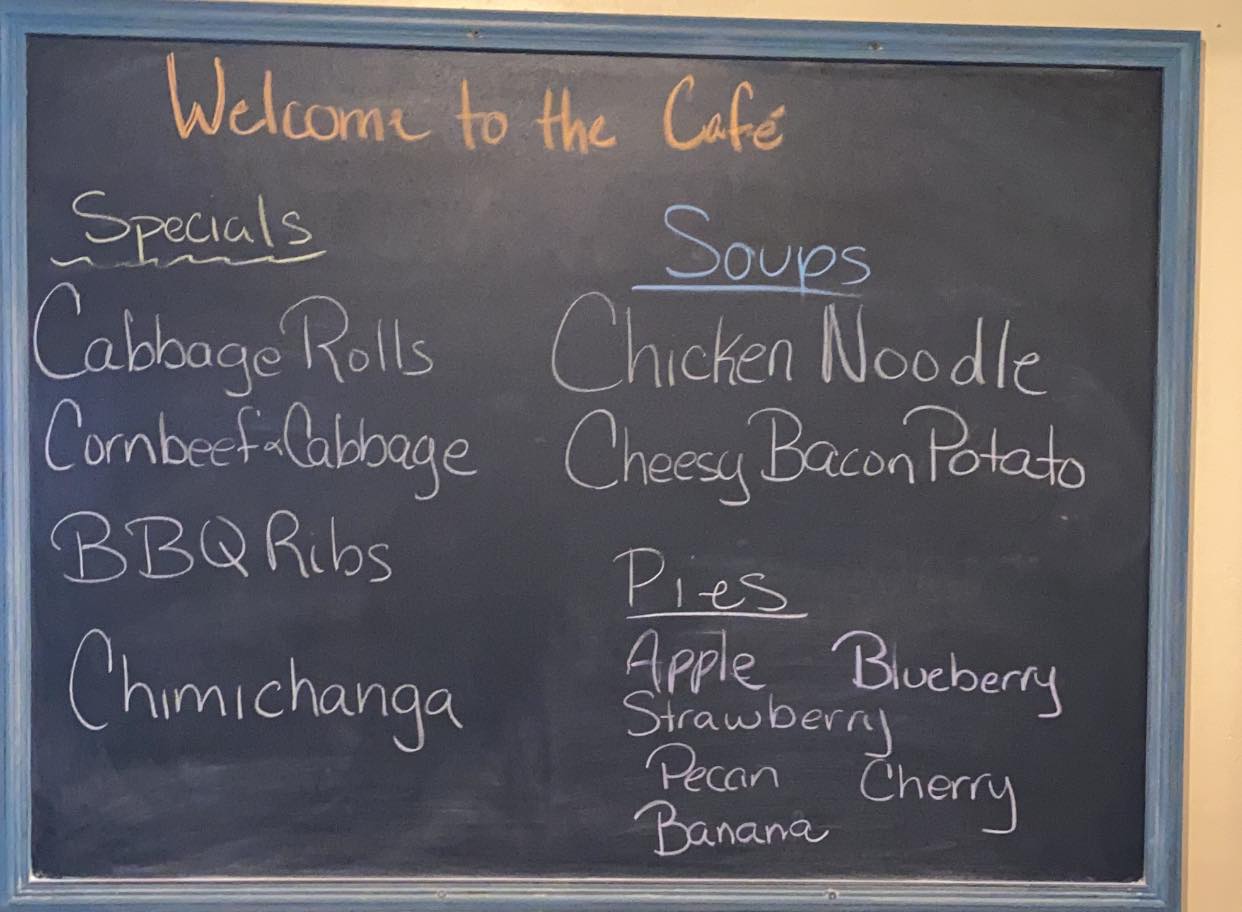 Welcome to the Café
Specials
Cabbage Rolls
Cornbeef & Cabbage
BBQ Ribs
Chimichanga
Soups
Chicken Noodle
Cheesy Bacon Potato
Pies
Apple Blueberry
Strawberry
Pecan Cherry
Banana